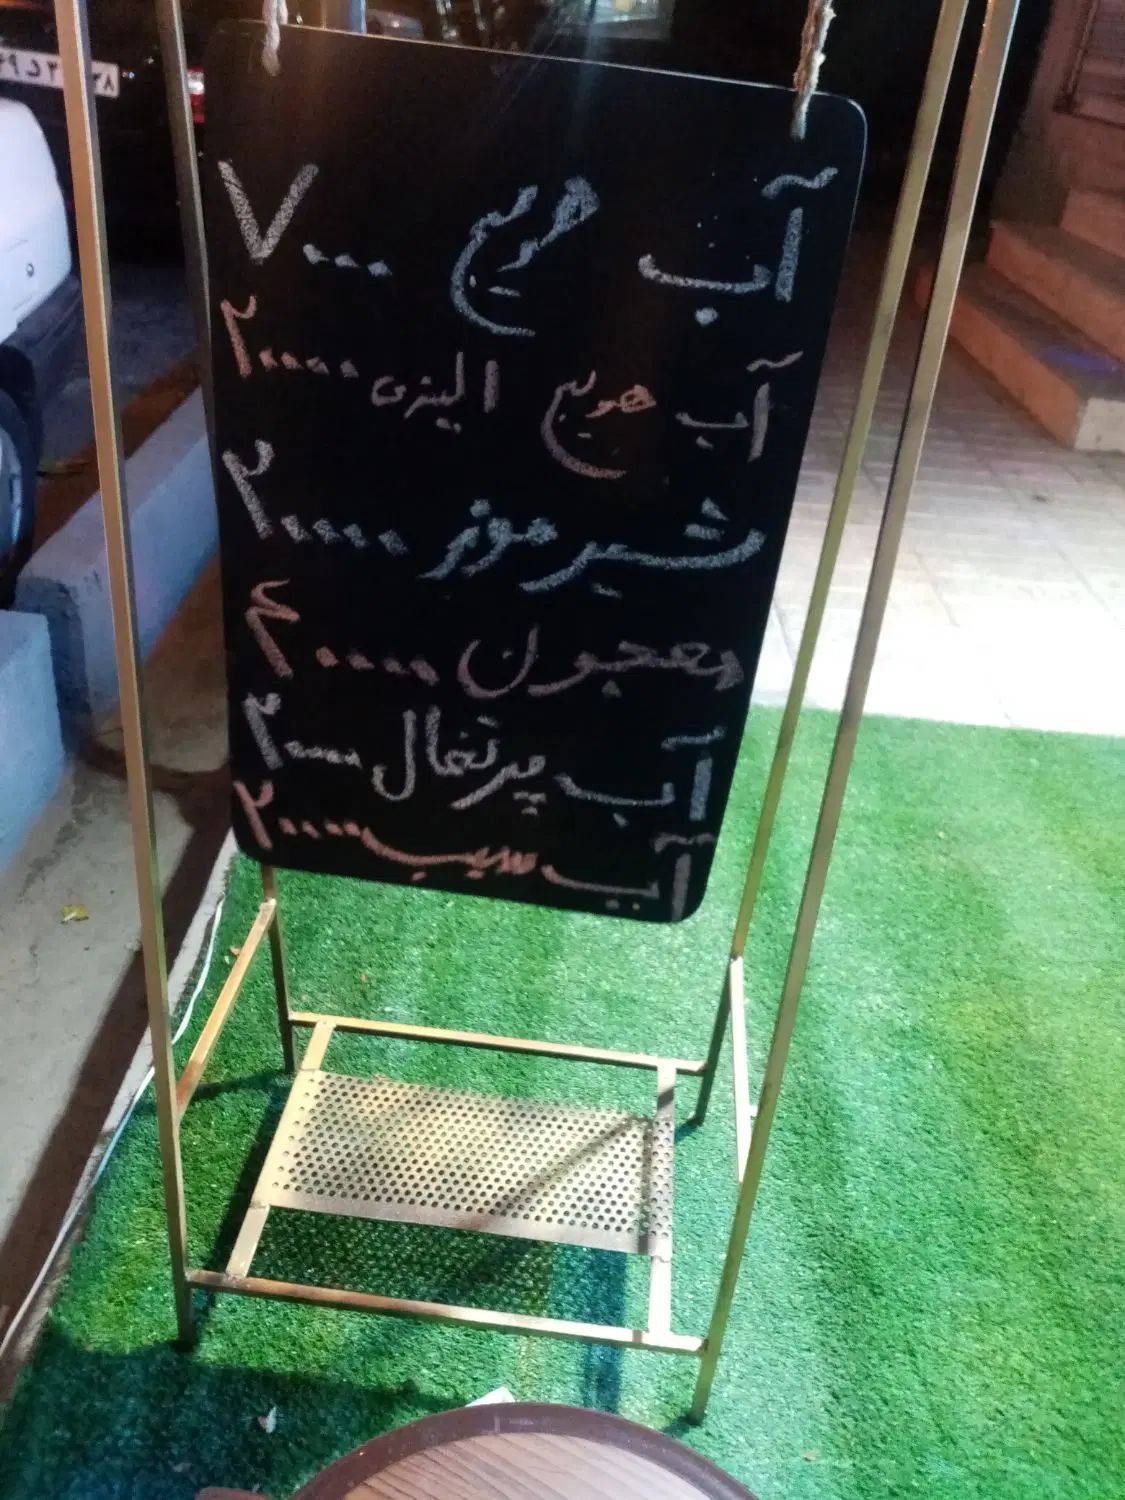 آب هویج ۷۰۰۰
آب هویج ۲۰۰۰۰
شیر موز ۲۰۰۰۰
معجون ۴۰۰۰۰
آب پرتغال ۳۰۰۰۰
آب سیب ۲۰۰۰۰